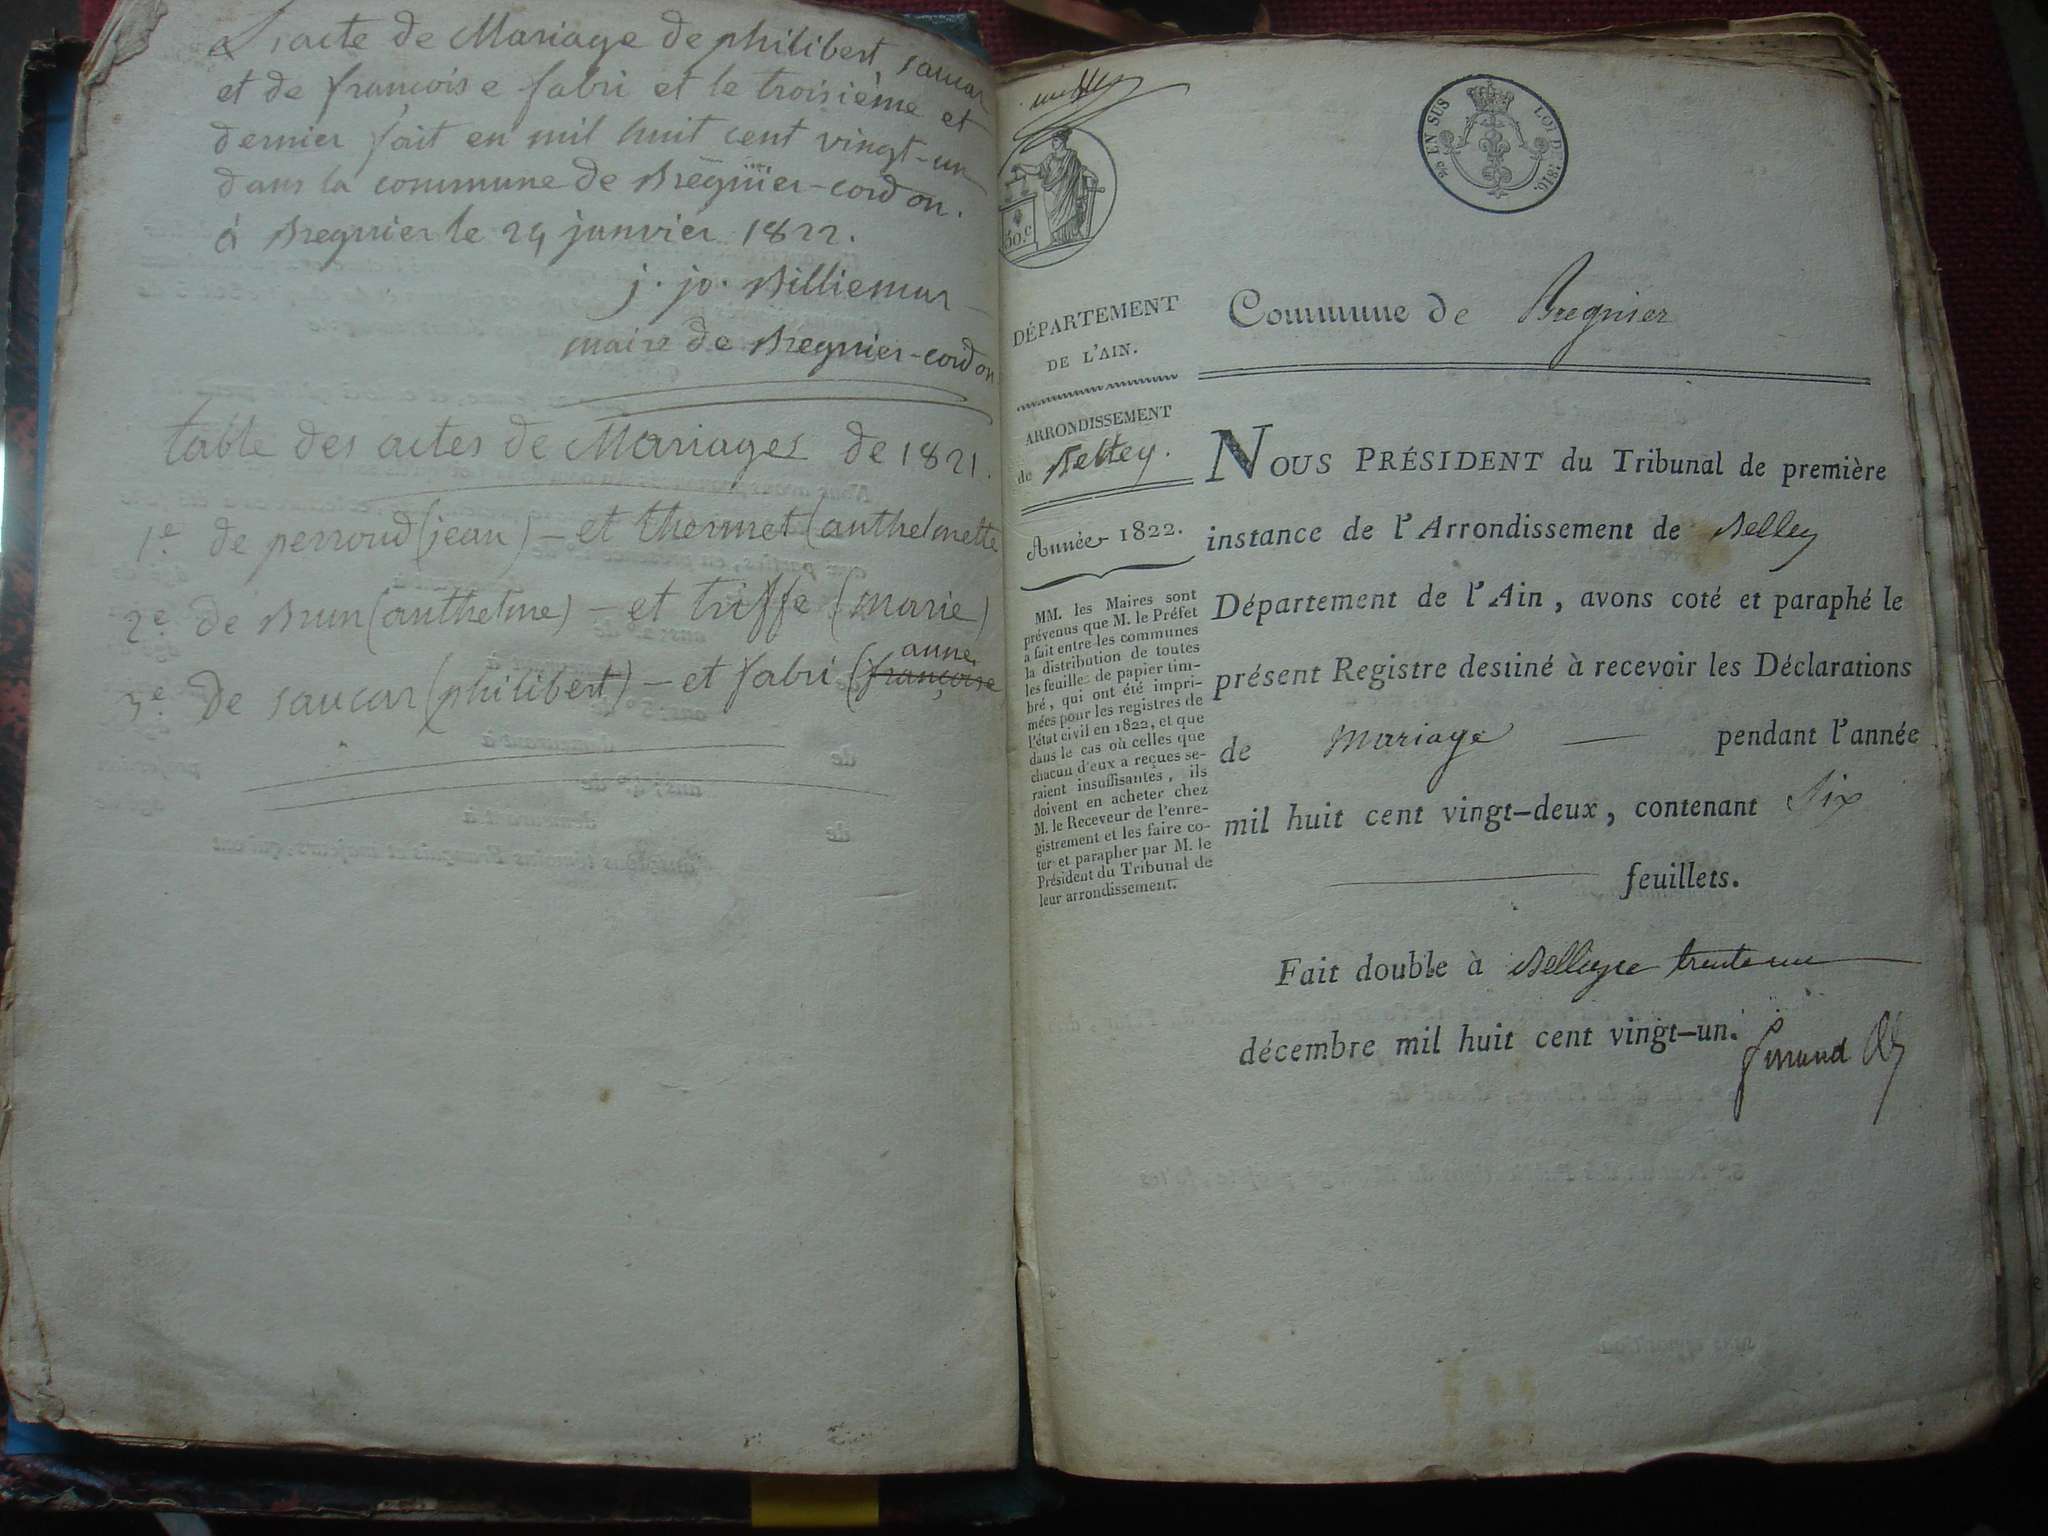 acte de Mariage de philibert saucar
et de françoise fabri et le troisième et
dernier fait en mil huit cent vingt-un
dans la commune de Bregnier-cordon.
à Bregnier le 24 janvier 1822.
j. jo. Billiemar
maire de Bregnier-cordon
table des actes de Mariages de 1821.
1e. de perroud (jean) – et thermet (anthelmette
2e. de Brun (anthelme) – et triffe (marie)
anne
3e. de saucar (philibert) – et fabri (françoise
50.c
EN SUS LOI DE 1816.
DÉPARTEMENT
DE L'AIN.
ARRONDISSEMENT
de Belley.
Année 1822.
MM. les Maires sont
prévenus que M. le Préfet
a fait entre les communes
la distribution de toutes
les feuilles de papier tim-
bré, qui ont été impri-
mées pour les registres de
l'état civil en 1822, et que
dans le cas où celles que
chacun d'eux a reçues se-
raient insuffisantes, ils
doivent en acheter chez
M. le Receveur de l'enre-
gistrement et les faire co-
ter et parapher par M. le
Président du Tribunal de
leur arrondissement.
Commune de Bregnier
NOUS PRÉSIDENT du Tribunal de première
instance de l'Arrondissement de Belley
Département de l'Ain, avons coté et paraphé le
présent Registre destiné à recevoir les Déclarations
de Mariage — pendant l'année
mil huit cent vingt-deux, contenant Six
feuillets.
Fait double à Belley le trente un
décembre mil huit cent vingt-un.